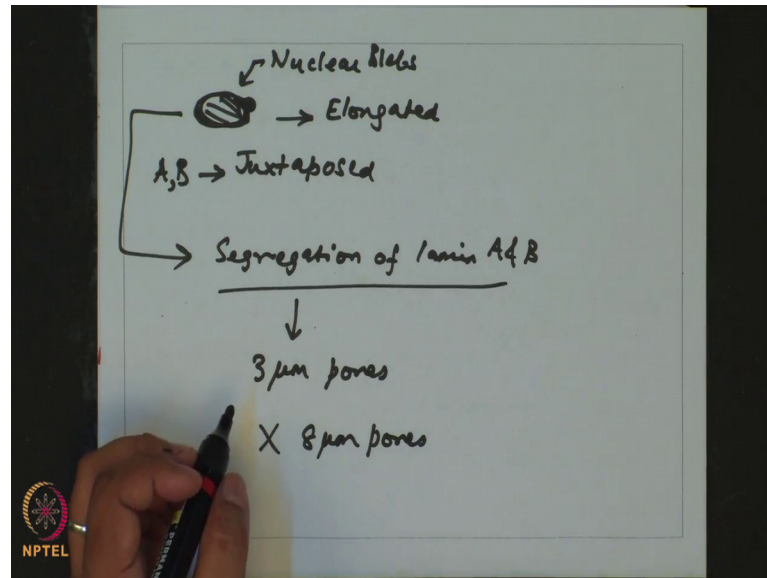 Nuclear Blebs
→ Elongated
A,B → Juxtaposed
Segregation of lamin A & B
3 μm pores
X 8 μm pores
NPTEL